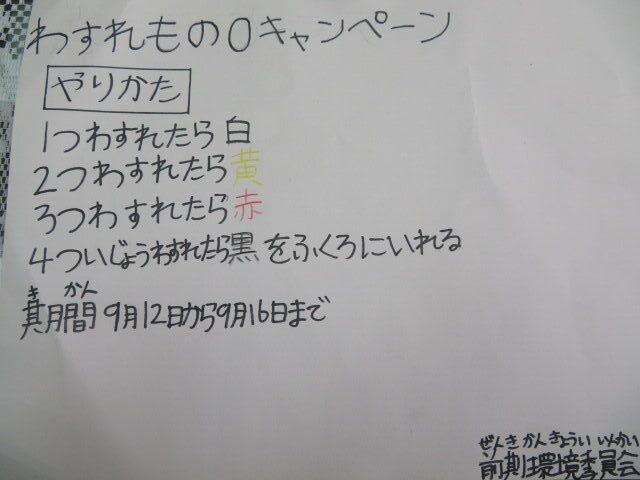 わすれもの0キャンペーン
やりかた
1つわすれたら白
2つわすれたら黄
3つわすれたら赤
4ついじょうわすれたら黒をふくろにいれる
きかん
期間 9月12日から9月16日まで
ぜんきかんきょういいんかい
前期環境委員会